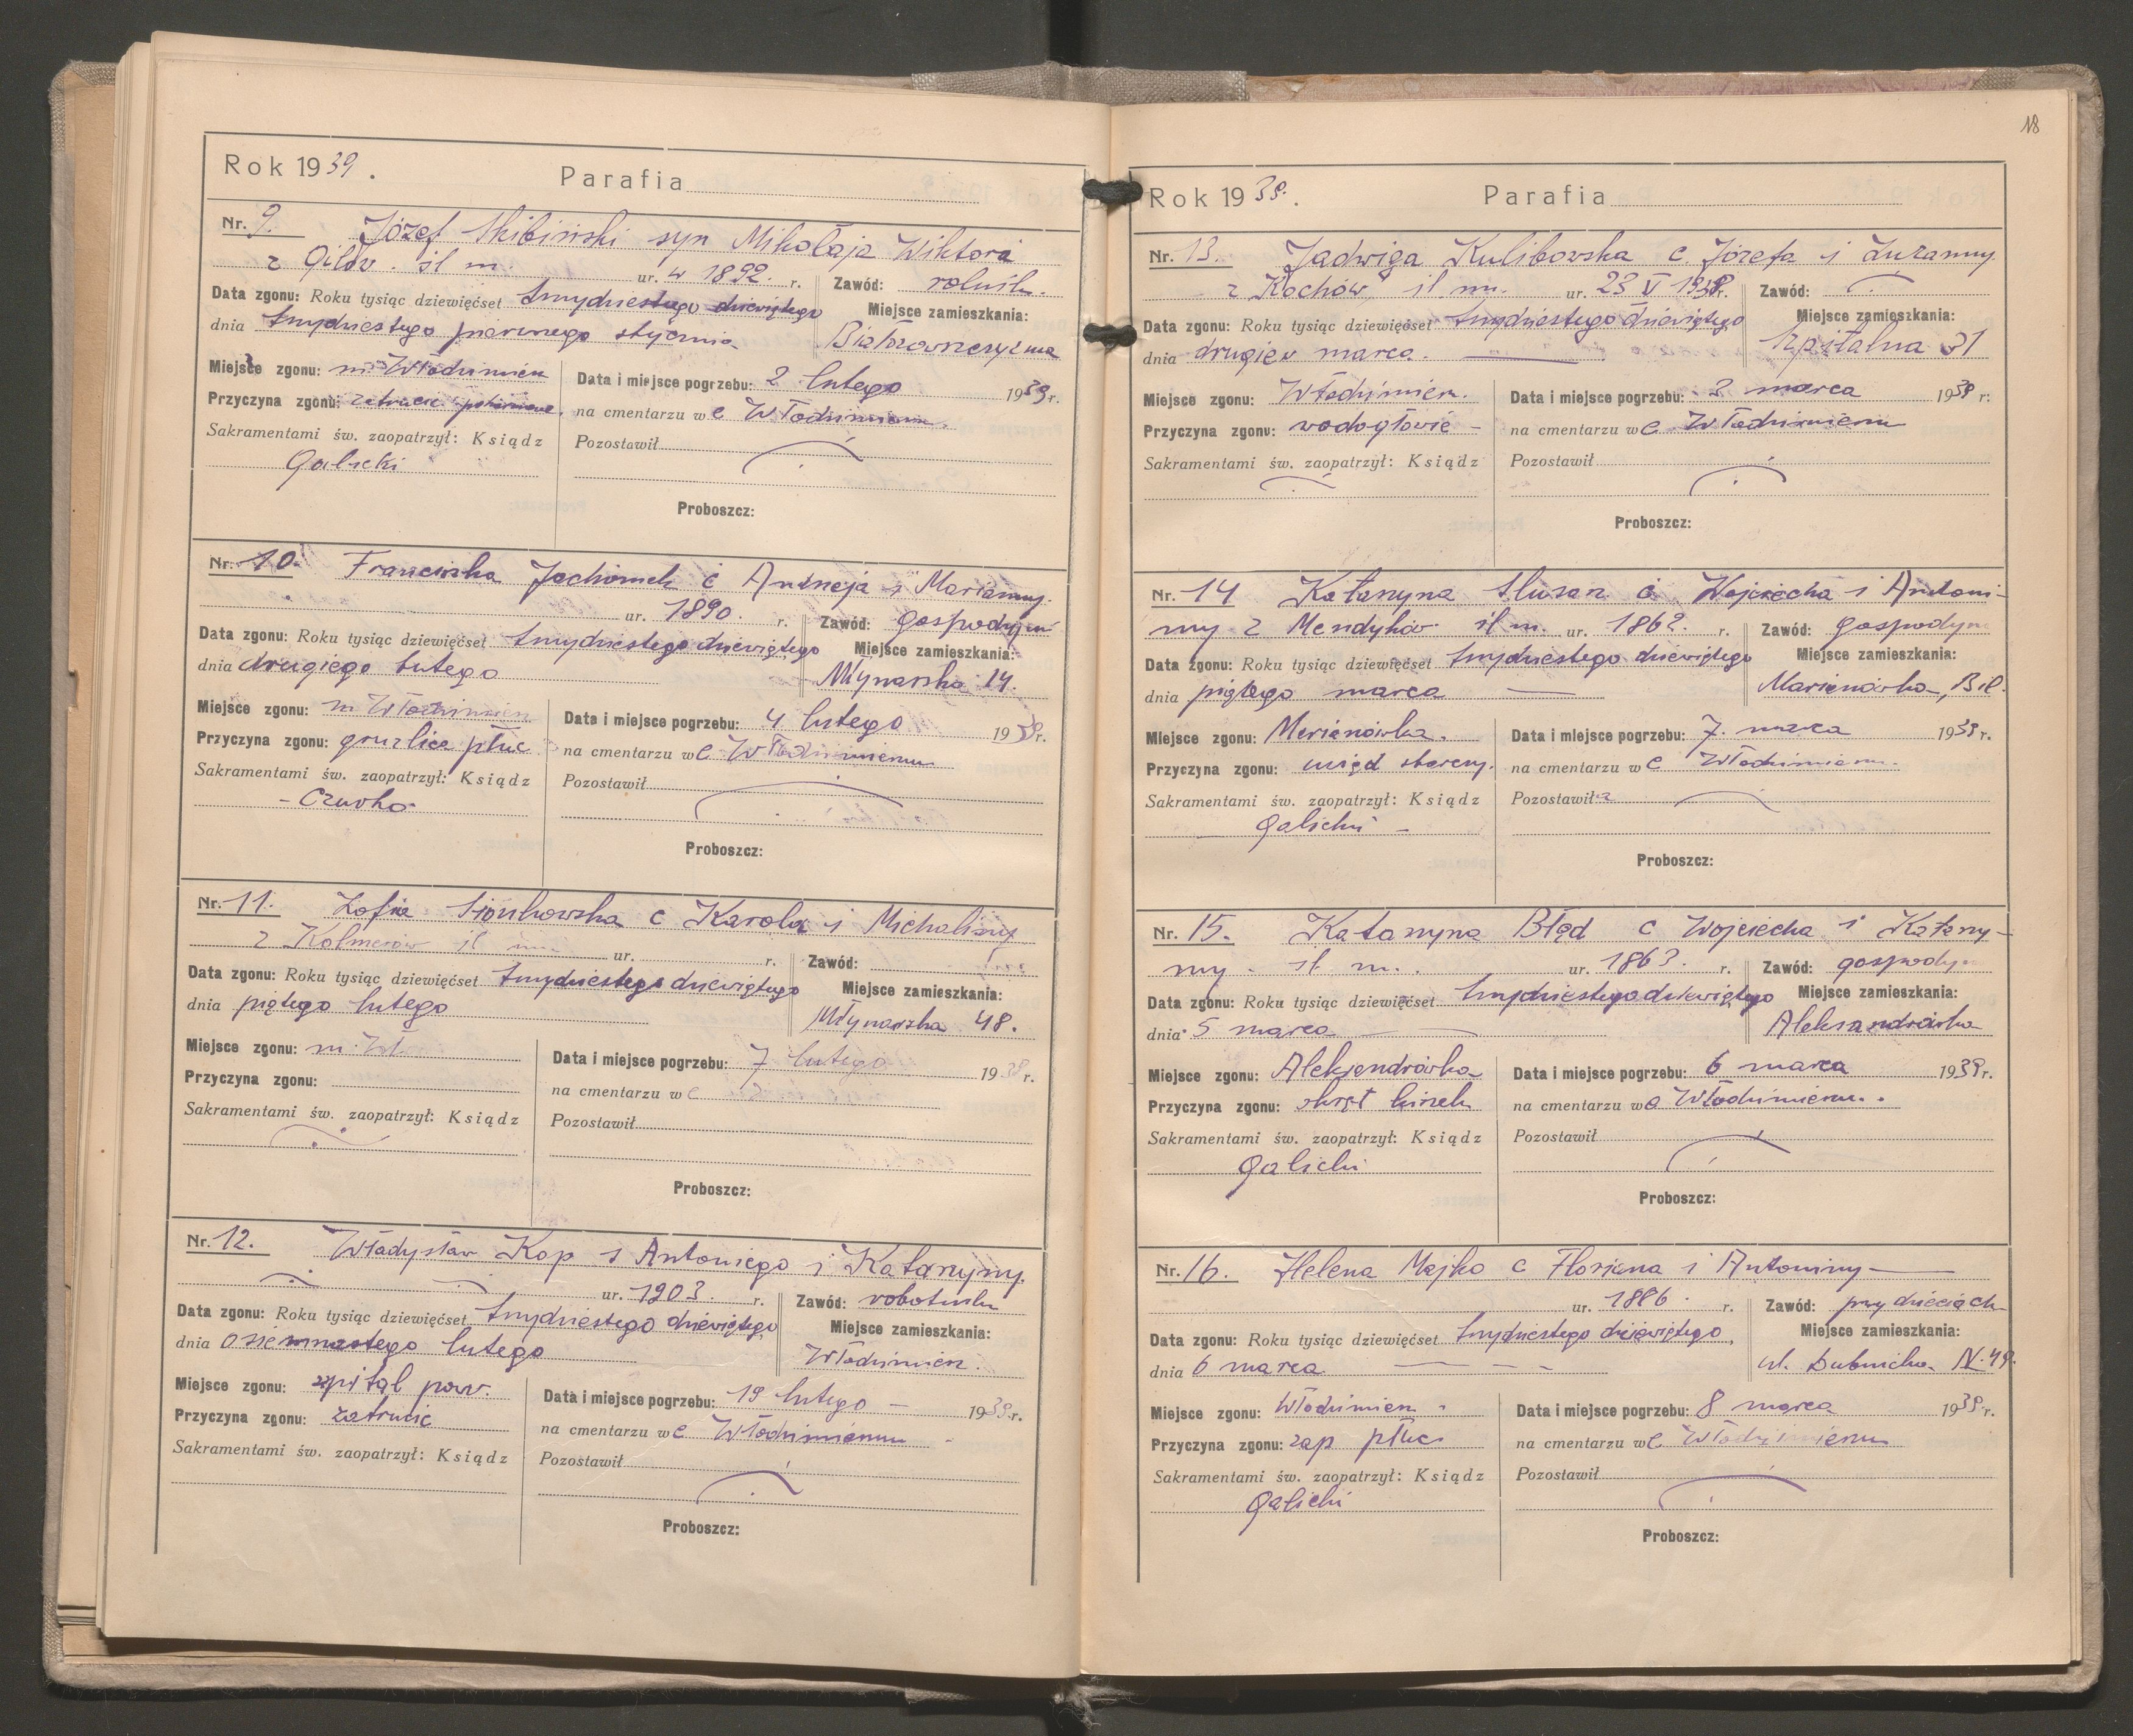 Rok 1939. Parafia
Nr. 9. Józef Skibiński syn Mikołaja Wiktora
z Gilów. śl m. ur. w 1892. r. Zawód: rolnik.
Data zgonu: Roku tysiąc dziewięćset trzydziestego dziewiątego Miejsce zamieszkania:
dnia trzydziestego pierwszego stycznia
Miejsce zgonu: m Włodzimierz Data i miejsce pogrzebu: 2 lutego 1939 r.
Przyczyna zgonu: zatrucie na cmentarzu w e Włodzimierzu.
Sakramentami św. zaopatrzył: Ksiądz Pozostawił
Galicki
Proboszcz:
Nr. 10. Franciszka Jachimek c Andrzeja i Marianny.
ur. 1890. r. Zawód: gospodyni
Data zgonu: Roku tysiąc dziewięćset trzydziestego dziewiątego Miejsce zamieszkania:
dnia drugiego lutego Młynarska 14.
Miejsce zgonu: m Włodzimierz Data i miejsce pogrzebu: 4 lutego 1939 r.
Przyczyna zgonu: gruźlica płuc na cmentarzu w e Włodzimierzu
Sakramentami św. zaopatrzył: Ksiądz Pozostawił
- Czurko
Proboszcz:
Nr. 11. Zofia c Karola i Michaliny
z śl m. ur. r. Zawód:
Data zgonu: Roku tysiąc dziewięćset trzydziestego dziewiątego Miejsce zamieszkania:
dnia piątego lutego Młynarska 48.
Miejsce zgonu: m. Wł Data i miejsce pogrzebu: 7 lutego 1939 r.
Przyczyna zgonu: na cmentarzu w e
Sakramentami św. zaopatrzył: Ksiądz Pozostawił
Proboszcz:
Nr. 12. Władysław Kop s Antoniego i Katarzyny.
ur. 1903. r. Zawód: robotnik
Data zgonu: Roku tysiąc dziewięćset trzydziestego dziewiątego Miejsce zamieszkania:
dnia osiemnastego lutego Włodzimierz.
Miejsce zgonu: szpital pow. Data i miejsce pogrzebu: 19 lutego - 1939 r.
Przyczyna zgonu: zatrucie na cmentarzu w e Włodzimierzu -
Sakramentami św. zaopatrzył: Ksiądz Pozostawił
Proboszcz:
18
Rok 1939. Parafia
Nr. 13. Jadwiga Kulibowska c Józefa i Zuzanny
z Kochów śl m. ur. 23 V 1938 r. Zawód:
Data zgonu: Roku tysiąc dziewięćset trzydziestego dziewiątego Miejsce zamieszkania:
dnia drugiego marca. Szpitalna 31
Miejsce zgonu: Włodzimierz. Data i miejsce pogrzebu: 3 marca 1939 r.
Przyczyna zgonu: wodogłowie - na cmentarzu w e Włodzimierzu
Sakramentami św. zaopatrzył: Ksiądz Pozostawił
Proboszcz:
Nr. 14 Katarzyna Slusarz c. Wojciecha i Antoni-
ny z Mendyków śl m. ur. 1862. r. Zawód: gospodyni
Data zgonu: Roku tysiąc dziewięćset trzydziestego dziewiątego Miejsce zamieszkania:
dnia piątego marca Marianówka,
Miejsce zgonu: Marianówka. Data i miejsce pogrzebu: 7. marca 1939 r.
Przyczyna zgonu: uwiąd starczy. na cmentarzu w e Włodzimierzu.
Sakramentami św. zaopatrzył: Ksiądz Pozostawiła
Galicki -
Proboszcz:
Nr. 15. Katarzyna Błąd c Wojciecha i Katarzy-
ny. śl. m. ur. 1863. r. Zawód: gospodyni
Data zgonu: Roku tysiąc dziewięćset trzydziestego dziewiątego Miejsce zamieszkania:
dnia 5 marca Aleksandrówka
Miejsce zgonu: Aleksandrówka Data i miejsce pogrzebu: 6 marca 1939 r.
Przyczyna zgonu: skręt kiszek na cmentarzu w e Włodzimierzu.
Sakramentami św. zaopatrzył: Ksiądz Pozostawił
Galicki
Proboszcz:
Nr. 16. Helena Majko c Floriana i Antoniny
ur. 1886. r. Zawód: przy dzieciach
Data zgonu: Roku tysiąc dziewięćset trzydziestego dziewiątego, Miejsce zamieszkania:
dnia 6 marca ul. N. 49.
Miejsce zgonu: Włodzimierz Data i miejsce pogrzebu: 8 marca 1939 r.
Przyczyna zgonu: zap płuc na cmentarzu w e Włodzimierzu
Sakramentami św. zaopatrzył: Ksiądz Pozostawił
Galicki
Proboszcz: